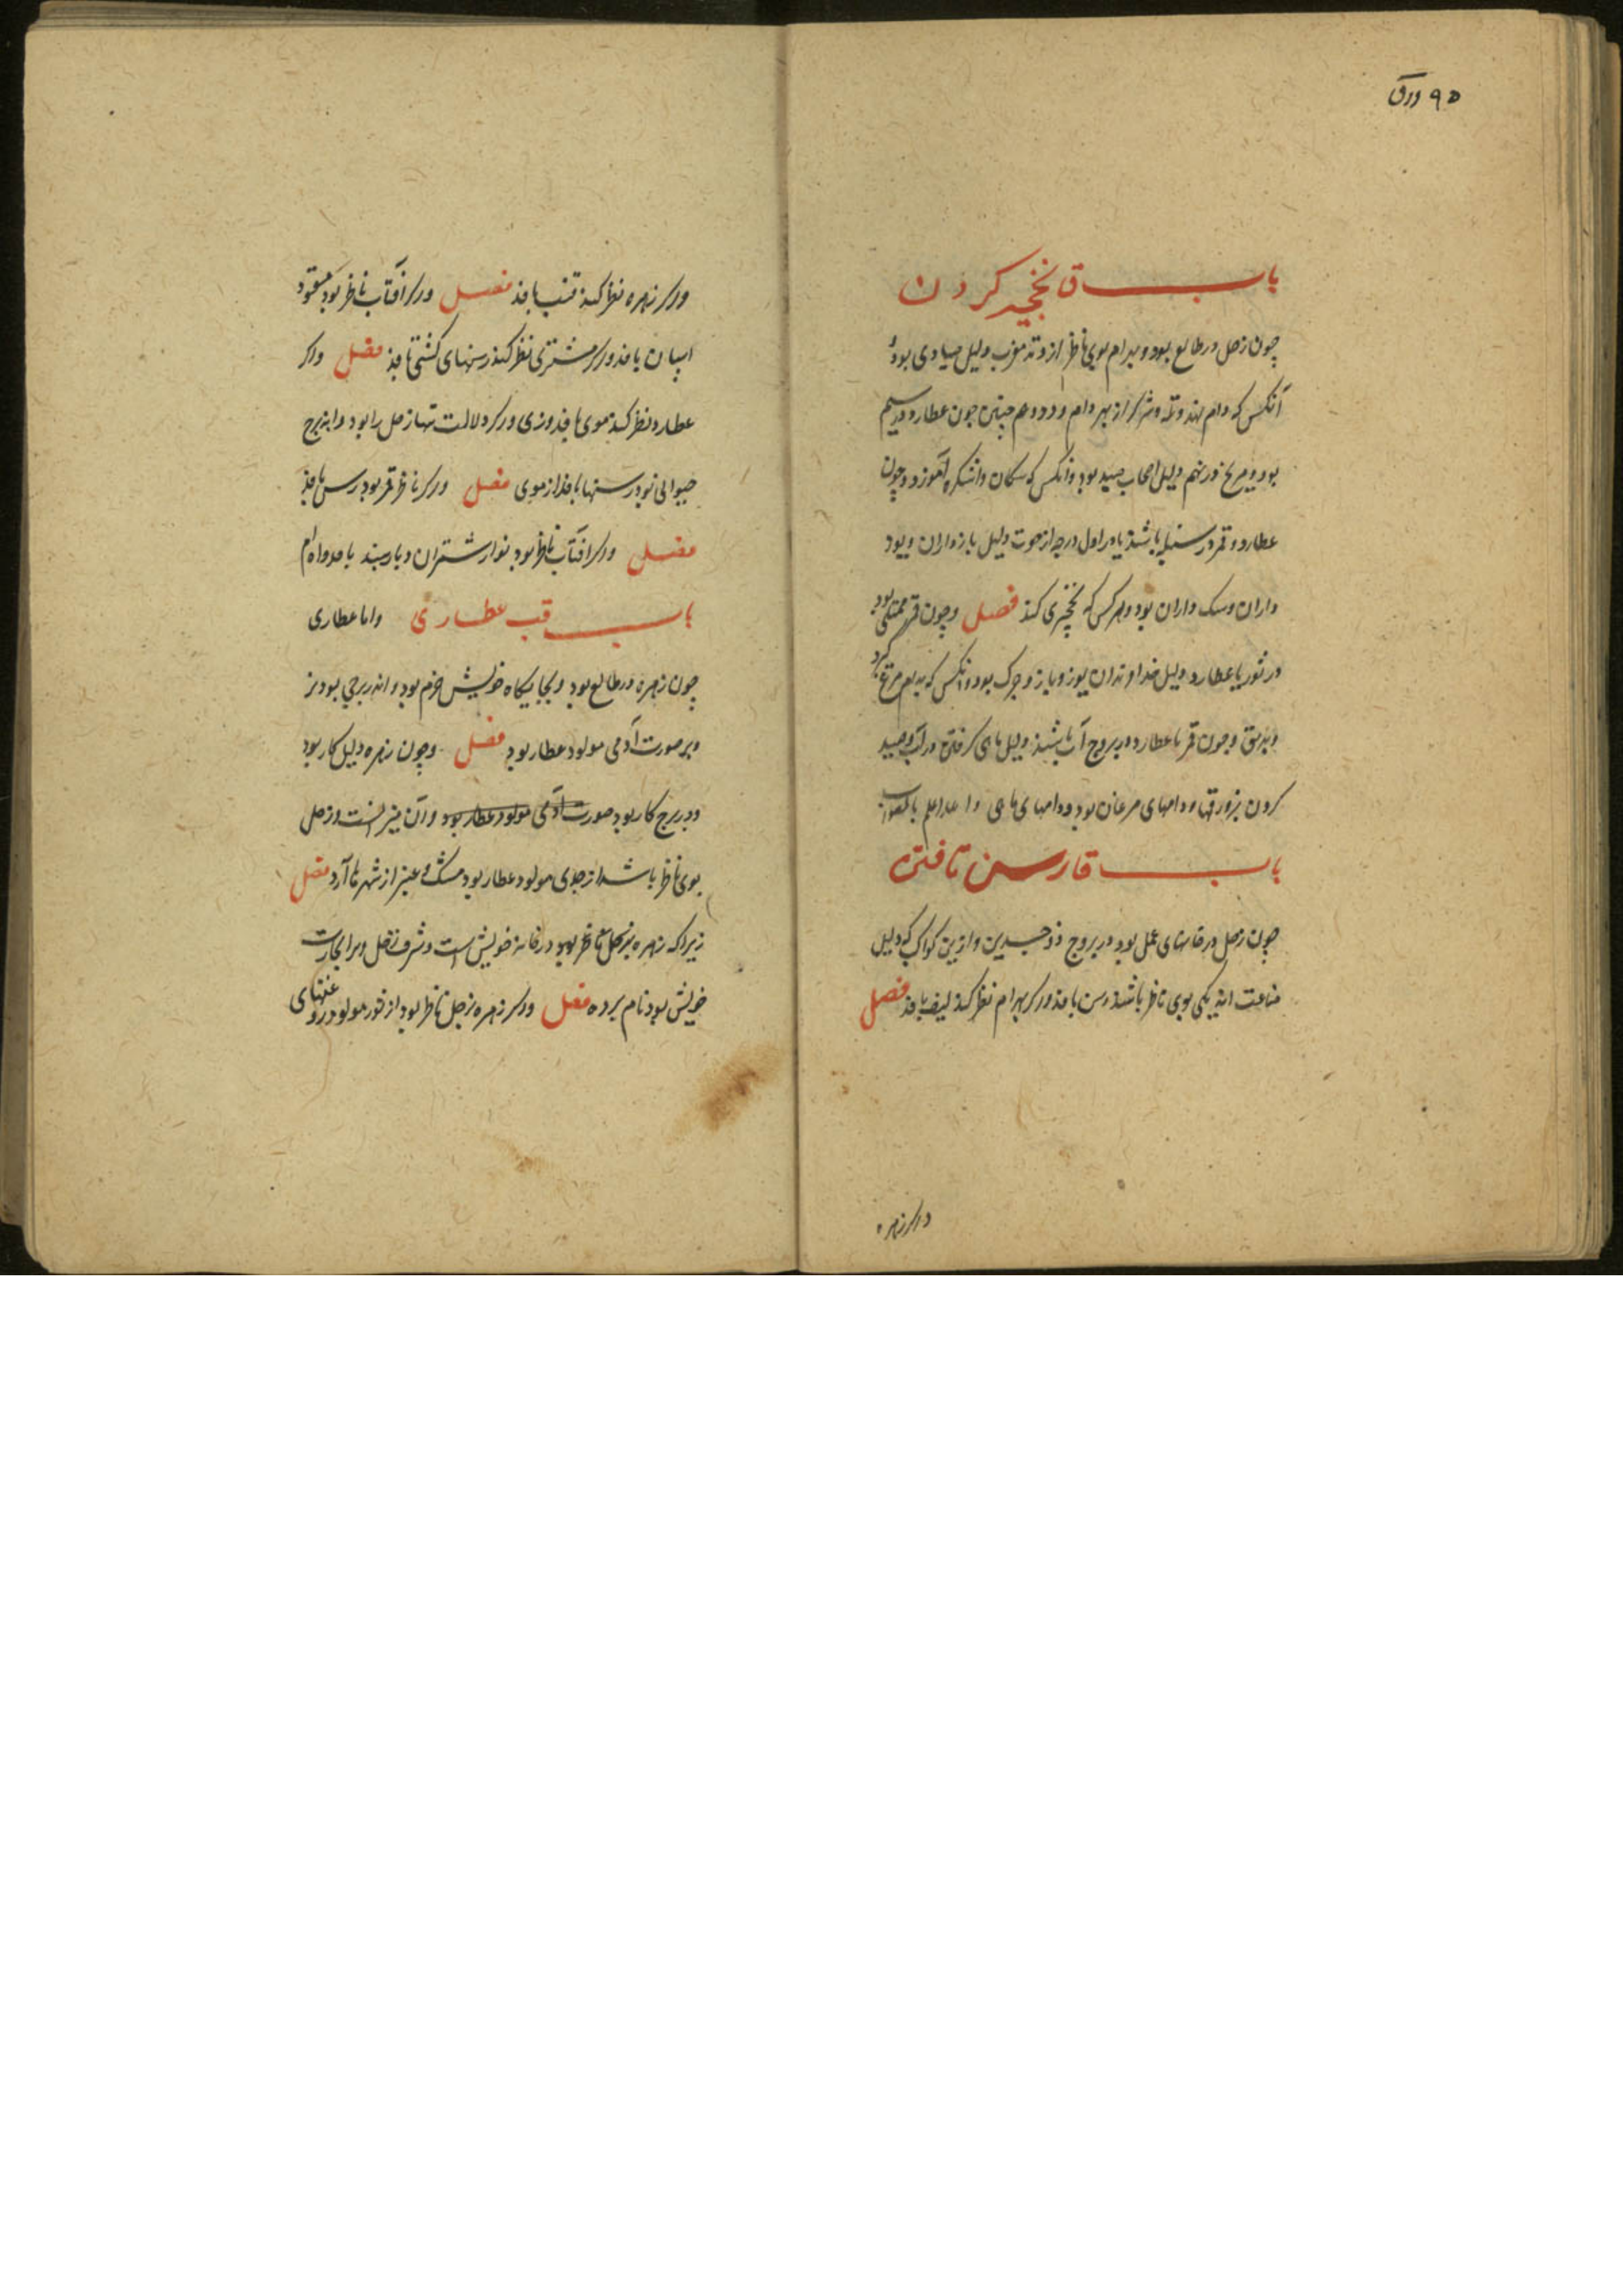 ۹۵ ورق
باب قا نخجیر کردن
چون زحل در طالع بود و بهرام بوی ناظر از وتد مغرب دلیل صیادی بود و
آنکس که دام نهد و تله و شرک از بهر دام و دد و هم چنین چون عطارد در سیم
بود و مریخ در نهم دلیل اصحاب صید بود و آنکس که سکان و اشکره آموزد و چون
عطارد و قمر در سنبله باشند یا در اول درجه از حوت دلیل بازداران و یوز
داران و سک داران بود و هر کس که نخچیری کند فصل و چون قمر ممتلی بود
در ثور با عطارد دلیل خداوندان یوز و باز و چرک بود و آنکس که بدام مرغ گیرد
و بدبق و چون قمر با عطارد در بروج آب باشند دلیل ماهی گرفتن در آب و صید
کردن بزورقها و دامهای مرغان بود و دامهای ماهی والله اعلم بالصواب
باب قا رسن تافتن
چون زحل در خانهای عمل بود در بروج ذوجسدین و ازین کواکب که دلیل
صناعت اند یکی بوی ناظر باشند رسن بافد ورکر بهرام نظر کند لیف بافد فصل
ورکر زهره
ورکر زهره نظر کند قنب بافد فصل ورکر آفتاب ناظر بود مقود
اسپان بافد ورکر مشتری نظر کند رسنهای کشتی تابد فصل واکر
عطارد نظر کند موی بافد وزی ورکر دلالت تنها زحل را بود و اندر برج
حیوانی بود رسنها بافد از موی فصل ورکر ناظر قمر بود رس بافد
فصل واکر آفتاب ناظر بود نوار شتران و باربند بافد
باب قب عطاری واما عطاری
چون زهره در طالع بود و بجایکاه خویش خرم بود و اندر برجی بود نر
و بر صورت آدمی مولود عطار بود فصل و چون زهره دلیل کار بود
و در برج کار بود صورت آدمی مولود عطار بود و آن میزانست و زحل
بوی ناظر باشد از جدی مولود عطار بود مشک و عنبر از شهرها آرد فصل
زیراکه زهره بزحل ناظر بود در خانه خویش است و شرف زحل و برا بجارت
خویش بود نام برده فصل ورکر زهره بزحل ناظر بود از ثور مولود روغنهای